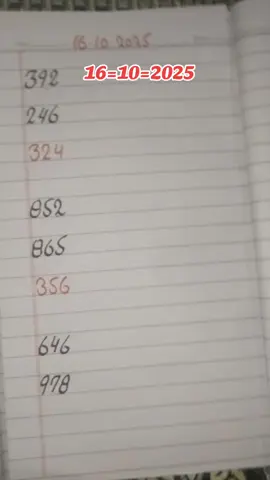 15.10.2025
16=10=2025
392
246
324
852
865
356
646
978